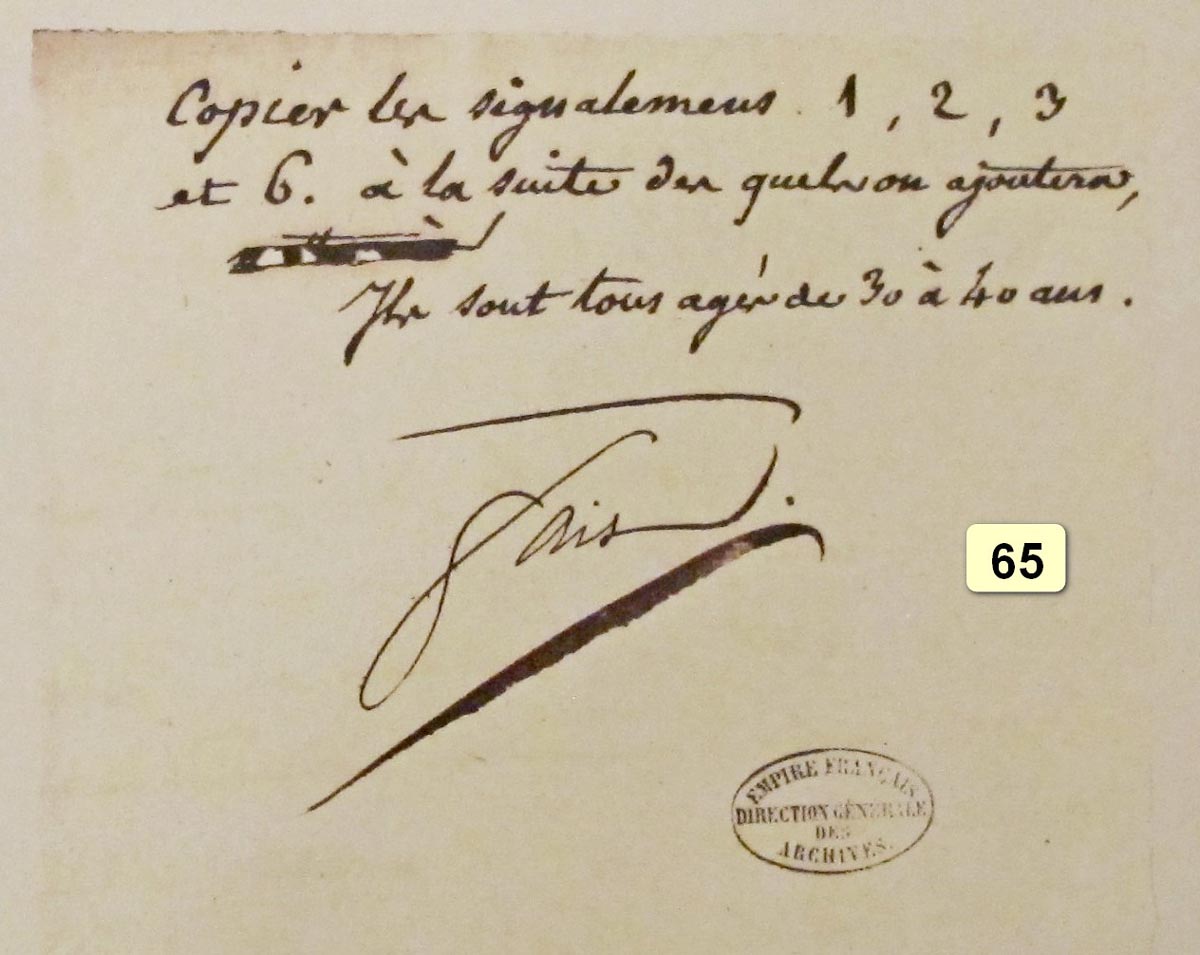 Copier les signalemens 1, 2, 3
et 6. à la suite des quels on ajoutera,
Ils sont tous agés de 30 à 40 ans.
fais
65
EMPIRE FRANÇAIS
DIRECTION GÉNÉRALE
DES
ARCHIVES.